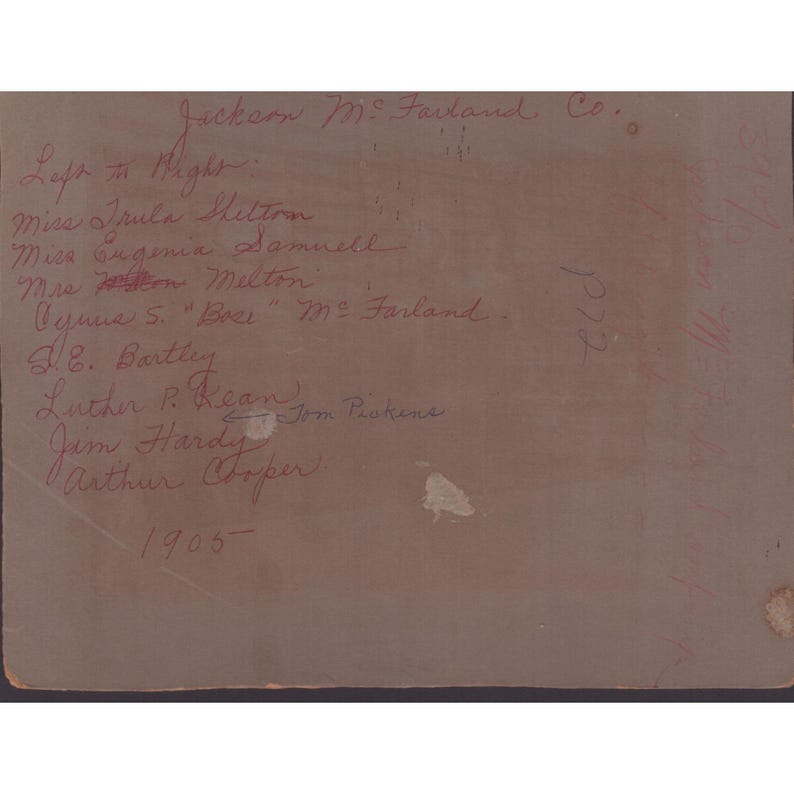 Jackson Mc Farland Co.
Left to Right:
Miss Trula Shelton
Miss Eugenia Samuell
Mrs Melton
Cyrus S. "Base" Mc Farland.
S. E. Bartley
Luther P. Kean
← Tom Pickens
Jim Hardy
Arthur Cooper
1905
Jackson Mc Farland Company